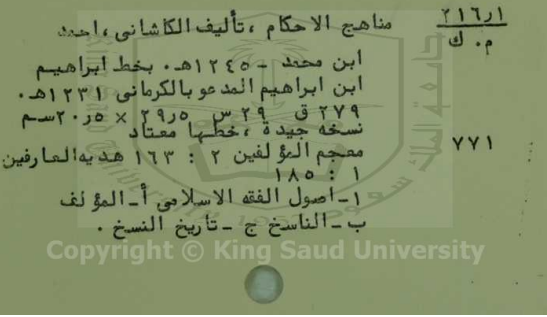 ٢١٦٫١
م . ك
مناهج الاحكام ، تأليف الكاشانى ، احمد
ابن محمد - ١٢٤٥هـ . بخط ابراهيم
ابن ابراهيم المدعو بالكرمانى ١٢٣١هـ .
٢٧٩ ق ٢٩ س ٢٩٫٥ × ٢٠٫٥سم
نسخه جيدة ، خطها معتاد
٧٧١
معجم المؤلفين ٢ : ١٦٣ هديه العارفين
١ : ١٨٥
١- اصول الفقه الاسلامى أ - المؤلف
ب - الناسخ ج - تاريخ النسخ .
Copyright © King Saud University